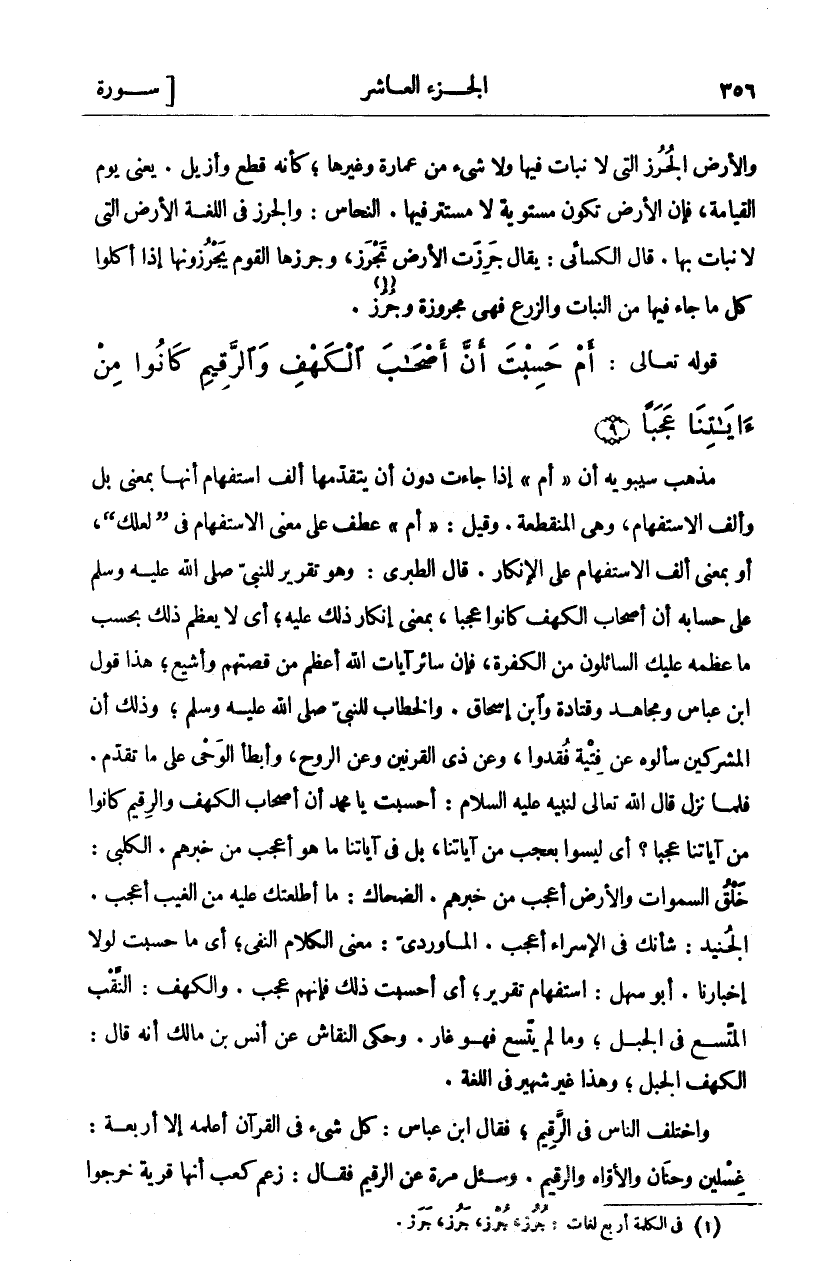 ٣٥٦ الجزء العاشر [ سورة
والأرض الجُرُز التى لا نبات فيها ولا شىء من عمارة وغيرها ؛ كأنه قطع وأزيل . يعنى يوم
القيامة، فإن الأرض تكون مستوية لا مستتر فيها . النحاس : والجرز فى اللغة الأرض التى
لا نبات بها . قال الكسائى : يقال جَرِزَت الأرض تَجْرَز، وجرزها القوم يَجْرُزونها إذا أكلوا
كل ما جاء فيها من النبات والزرع فهى مجروزة وجُرُز (١) .
قوله تعالى : أَمْ حَسِبْتَ أَنَّ أَصْحَٰبَ ٱلْكَهْفِ وَٱلرَّقِيمِ كَانُوا مِنْ
ءَايَٰتِنَا عَجَبًا ۝٩
مذهب سيبويه أن « أم » إذا جاءت دون أن يتقدّمها ألف استفهام أنها بمعنى بل
وألف الاستفهام، وهى المنقطعة . وقيل : « أم » عطف على معنى الاستفهام فى ”لعلك“،
أو بمعنى ألف الاستفهام على الإنكار . قال الطبرى : وهو تقرير للنبىّ صلى الله عليه وسلم
على حسابه أن أصحاب الكهف كانوا عجبا ، بمعنى إنكار ذلك عليه؛ أى لا يعظم ذلك بحسب
ما عظمه عليك السائلون من الكفرة، فإن سائر آيات الله أعظم من قصتهم وأشيع؛ هذا قول
ابن عباس ومجاهد وقتادة وآبن إسحاق . والخطاب للنبىّ صلى الله عليه وسلم ؛ وذلك أن
المشركين سألوه عن فِتْية فُقدوا ، وعن ذى القرنين وعن الروح، وأبطأ الوَحْى على ما تقدّم .
فلما نزل قال الله تعالى لنبيه عليه السلام : أحسبت يا محمد أن أصحاب الكهف والرقِيم كانوا
من آياتنا عجبا ؟ أى ليسوا بعجب من آياتنا، بل فى آياتنا ما هو أعجب من خبرهم . الكلبى :
خَلْقُ السموات والأرض أعجب من خبرهم . الضحاك : ما أطلعتك عليه من الغيب أعجب .
الجُنيد : شأنك فى الإسراء أعجب . الماوردىّ : معنى الكلام النفى؛ أى ما حسبت لولا
إخبارنا . أبو سهل : استفهام تقرير؛ أى أحسبت ذلك فإنهم عجب . والكهف : النَّقْب
المتّسع فى الجبل ؛ وما لم يتّسع فهو غار . وحكى النقاش عن أنس بن مالك أنه قال :
الكهف الجبل ؛ وهذا غير شهير فى اللغة .
واختلف الناس فى الرَّقِيم ؛ فقال ابن عباس : كل شىء فى القرآن أعلمه إلا أربعة :
غِسْلين وحنَان والأوّاه والرقيم . وسئل مرة عن الرقيم فقال : زعم كعب أنها قرية خرجوا
(١) فى الكلمة أربع لغات : جُرُز، جُرْز، جَرُز، جَرَز .